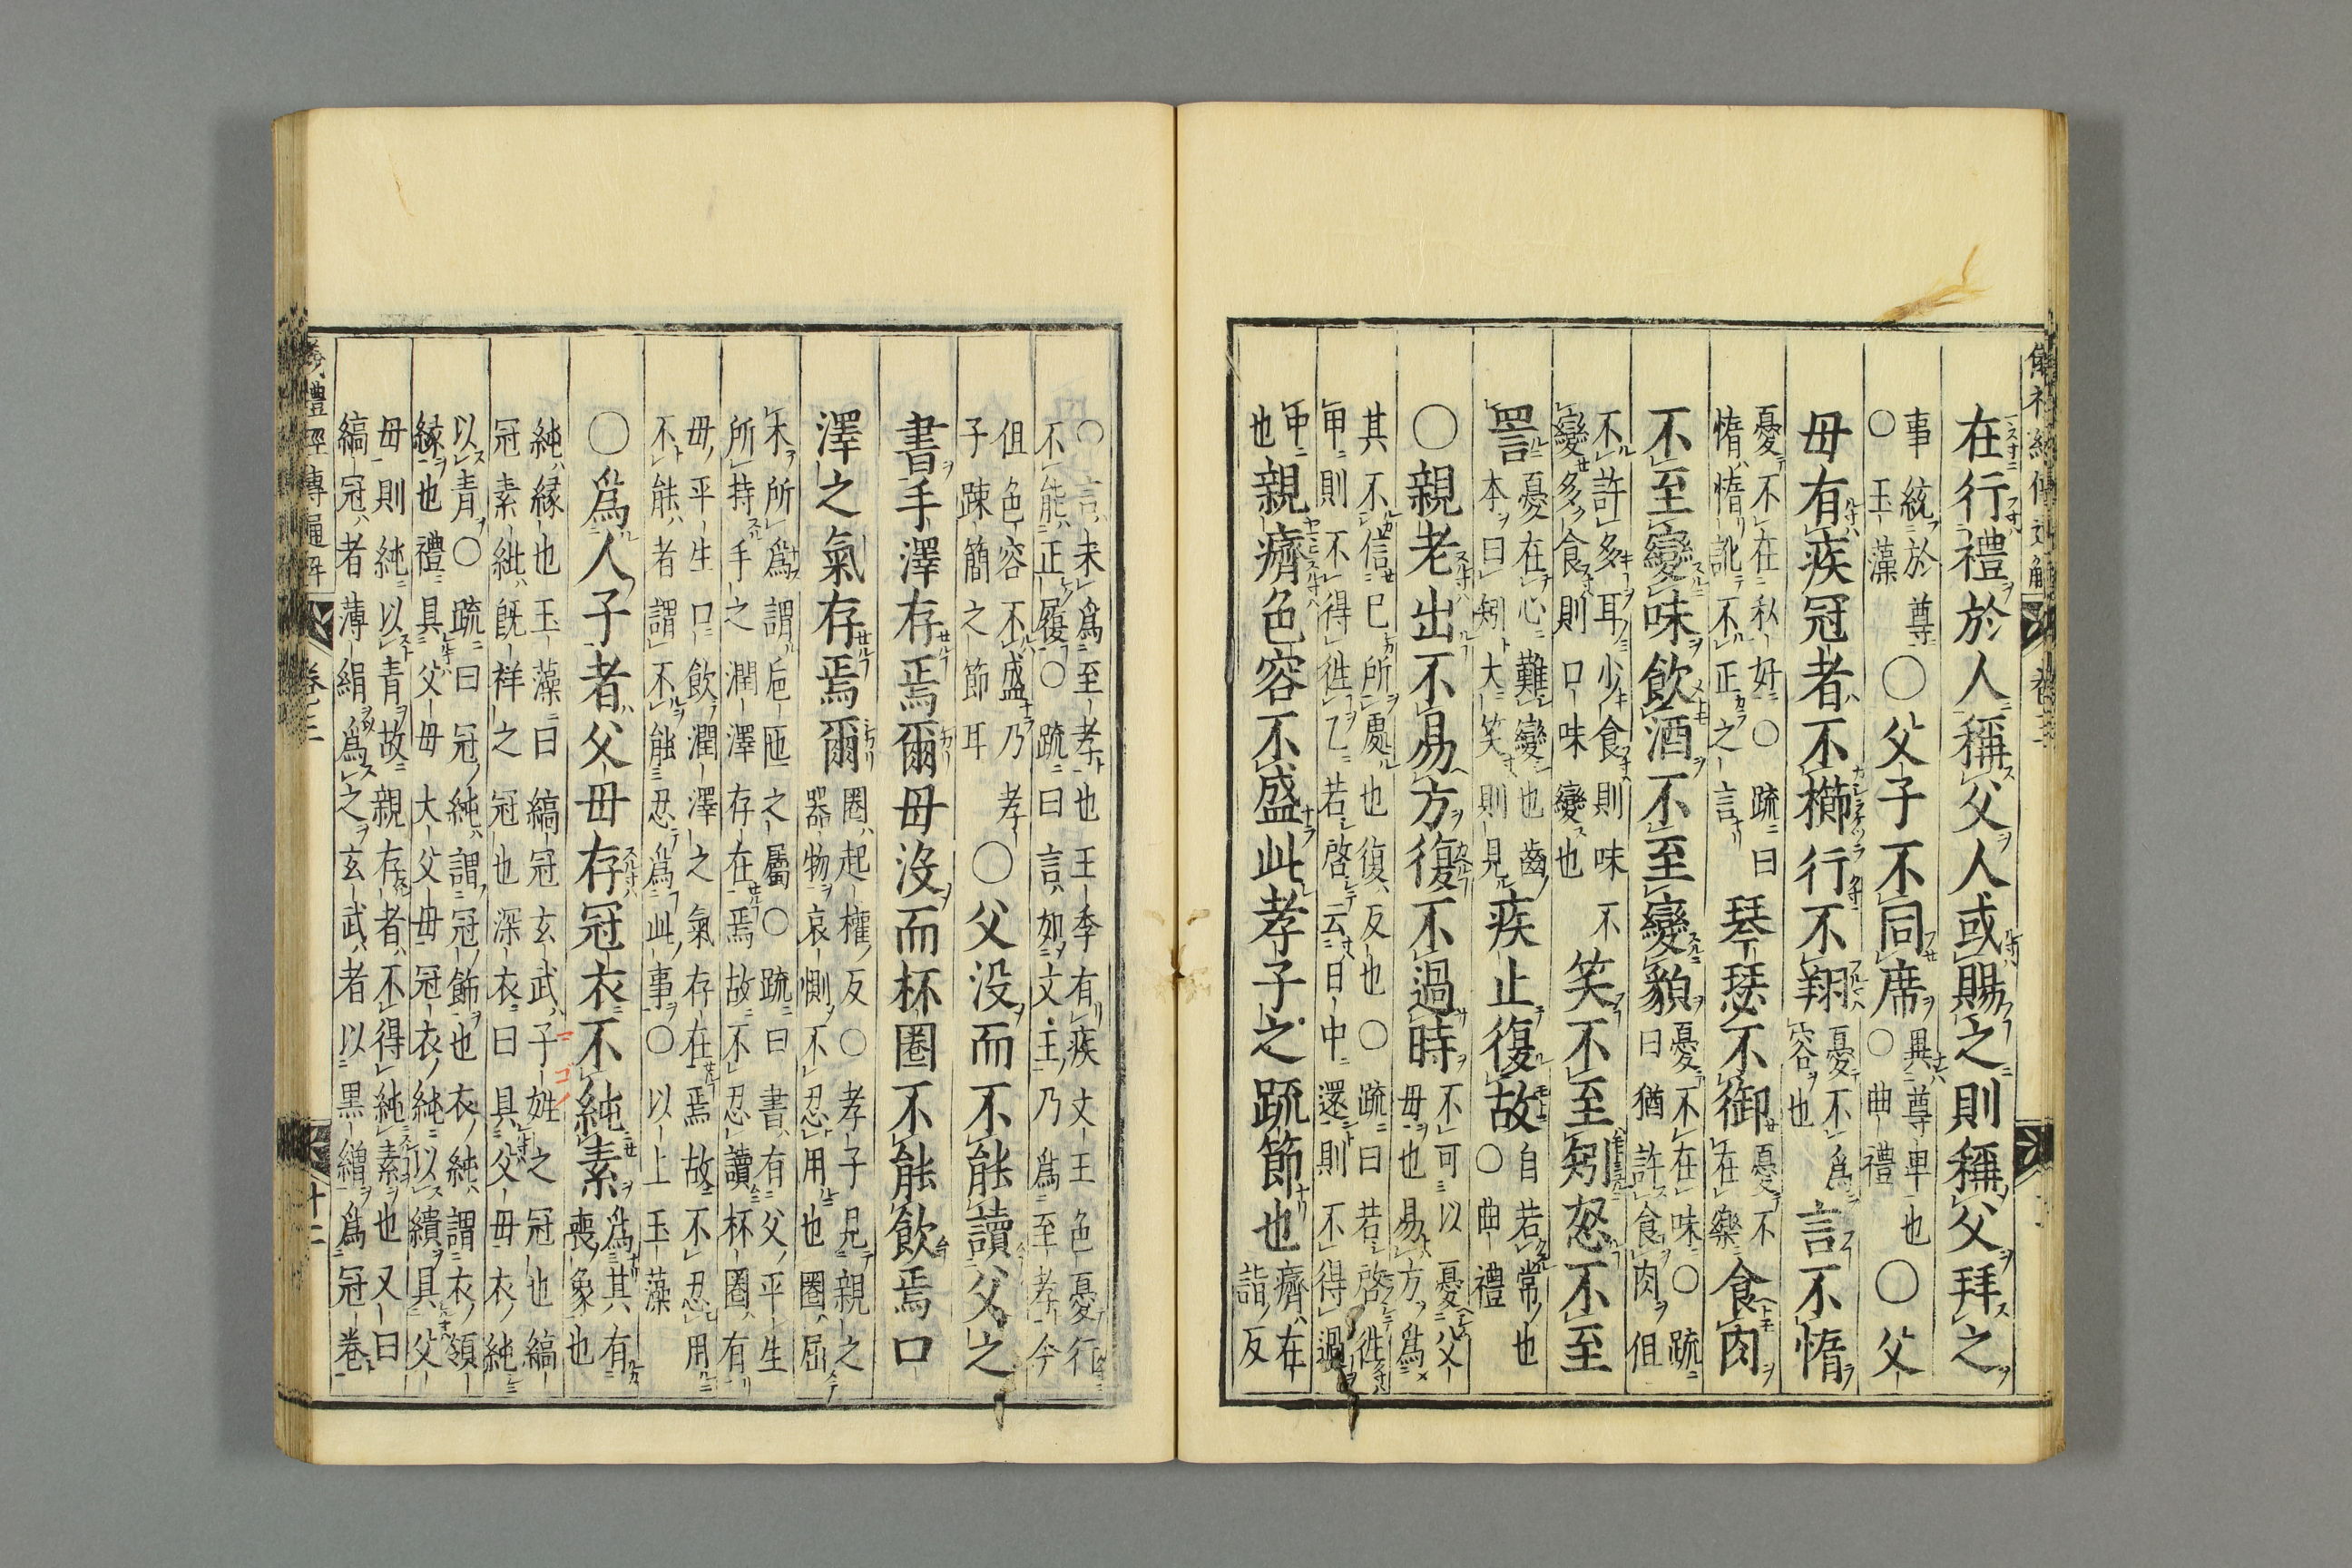 在行禮於人稱父人或賜之則稱父拜之
事統於尊
○玉藻
○父子不同席
異尊卑也
○曲禮
○父
母有疾冠者不櫛行不翔
憂不爲
容也
言不惰
憂不在私好○疏曰
惰惰訛不正之言
琴瑟不御
憂不
在樂
食肉
不至變味飲酒不至變貌
憂不在味○疏
曰猶許食肉但
不許多耳少食則味不
變多食則口味變也
笑不至矧怒不至
詈
憂在心難變也齒
本曰矧大笑則見
疾止復故
自若常也
○曲禮
○親老出不易方復不過時
不可以憂父
母也易方爲
其不信己所處也復反也○疏曰若啓往
甲則不得往乙若啓云日中還則不得過
中
也
親癠色容不盛此孝子之疏節也
癠在
詣反
○言未爲至孝也王季有疾文王色憂行
不能正履○疏曰言如文王乃爲至孝今
但色容不盛乃孝
子踈簡之節耳
○父没而不能讀父之
書手澤存焉爾母沒而杯圈不能飲焉口
澤之氣存焉爾
圈起權反○孝子見親之
器物哀惻不忍用也圈屈
木所爲謂巵匜之屬○疏曰書有父平生
所持手之潤澤存在焉故不忍讀杯圈有
母平生口飲潤澤之氣存在焉故不忍用
不能者謂不能忍爲此事○以上玉藻
○爲人子者父母存冠衣不純素
爲其有
喪象也
純緣也玉藻曰縞冠玄武子姓之冠也縞
冠素紕旣祥之冠也深衣曰具父母衣純
以青○疏曰冠純謂冠飾也衣純謂衣領
緣也禮具父母大父母冠衣純以繢具父
母則純以青故親存者不得純素也又曰
縞冠者薄絹爲之玄武者以黑繒爲冠卷
儀禮經傳通解
卷三
十二